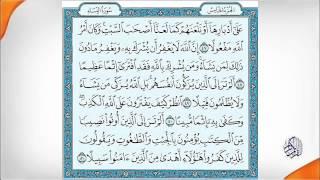 الجزء الخامس سورة النساء
عَلَىٰ أَدْبَارِهَا أَوْ نَلْعَنَهُمْ كَمَا لَعَنَّا أَصْحَٰبَ السَّبْتِ وَكَانَ أَمْرُ
اللَّهِ مَفْعُولًا إِنَّ اللَّهَ لَا يَغْفِرُ أَن يُشْرَكَ بِهِ وَيَغْفِرُ مَا دُونَ
ذَٰلِكَ لِمَن يَشَاءُ وَمَن يُشْرِكْ بِاللَّهِ فَقَدِ افْتَرَىٰ إِثْمًا عَظِيمًا
أَلَمْ تَرَ إِلَى الَّذِينَ يُزَكُّونَ أَنفُسَهُم بَلِ اللَّهُ يُزَكِّي مَن يَشَاءُ
وَلَا يُظْلَمُونَ فَتِيلًا انظُرْ كَيْفَ يَفْتَرُونَ عَلَى اللَّهِ الْكَذِبَ
وَكَفَىٰ بِهِ إِثْمًا مُّبِينًا أَلَمْ تَرَ إِلَى الَّذِينَ أُوتُوا نَصِيبًا
مِّنَ الْكِتَٰبِ يُؤْمِنُونَ بِالْجِبْتِ وَالطَّٰغُوتِ وَيَقُولُونَ
لِلَّذِينَ كَفَرُوا هَٰؤُلَاءِ أَهْدَىٰ مِنَ الَّذِينَ ءَامَنُوا سَبِيلًا